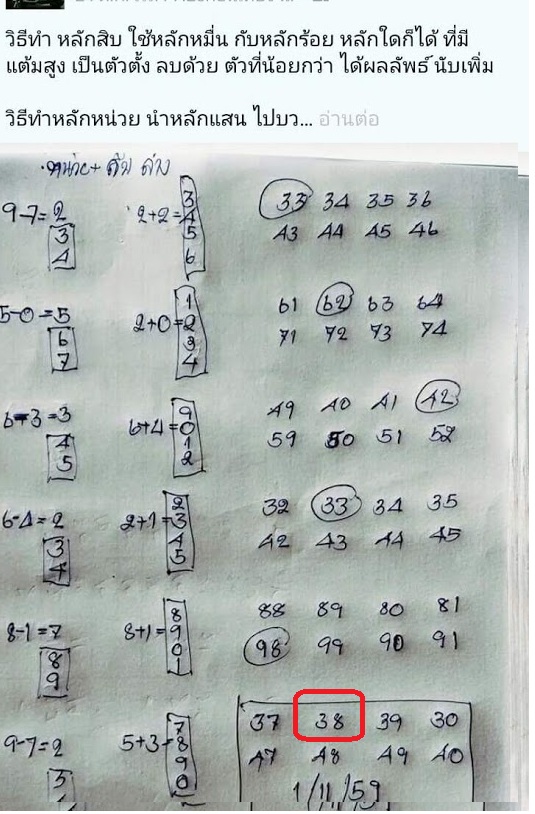 วิธีทำ หลักสิบ ใช้หลักหมื่น กับหลักร้อย หลักใดก็ได้ ที่มี
แต้มสูง เป็นตัวตั้ง ลบด้วย ตัวที่น้อยกว่า ได้ผลลัพธ์ นับเพิ่ม
วิธีทำหลักหน่วย นำหลักแสน ไปบว... อ่านต่อ
ล่าง
9-7=2 2+2=4 33 34 35 36
3 4 3 5 6 43 44 45 46
5-0=5 2+0=2 61 62 63 64
6 7 1 3 4 71 72 73 74
6-3=3 6+4=0 49 40 41 42
4 5 9 1 2 59 50 51 52
6-4=2 2+1=3 32 33 34 35
3 4 2 4 5 42 43 44 45
8-1=7 8+1=9 88 89 80 81
8 9 8 0 1 98 99 90 91
9-7=2 5+3=8 37 38 39 30
3 4 7 9 0 47 48 49 40
1/11/59